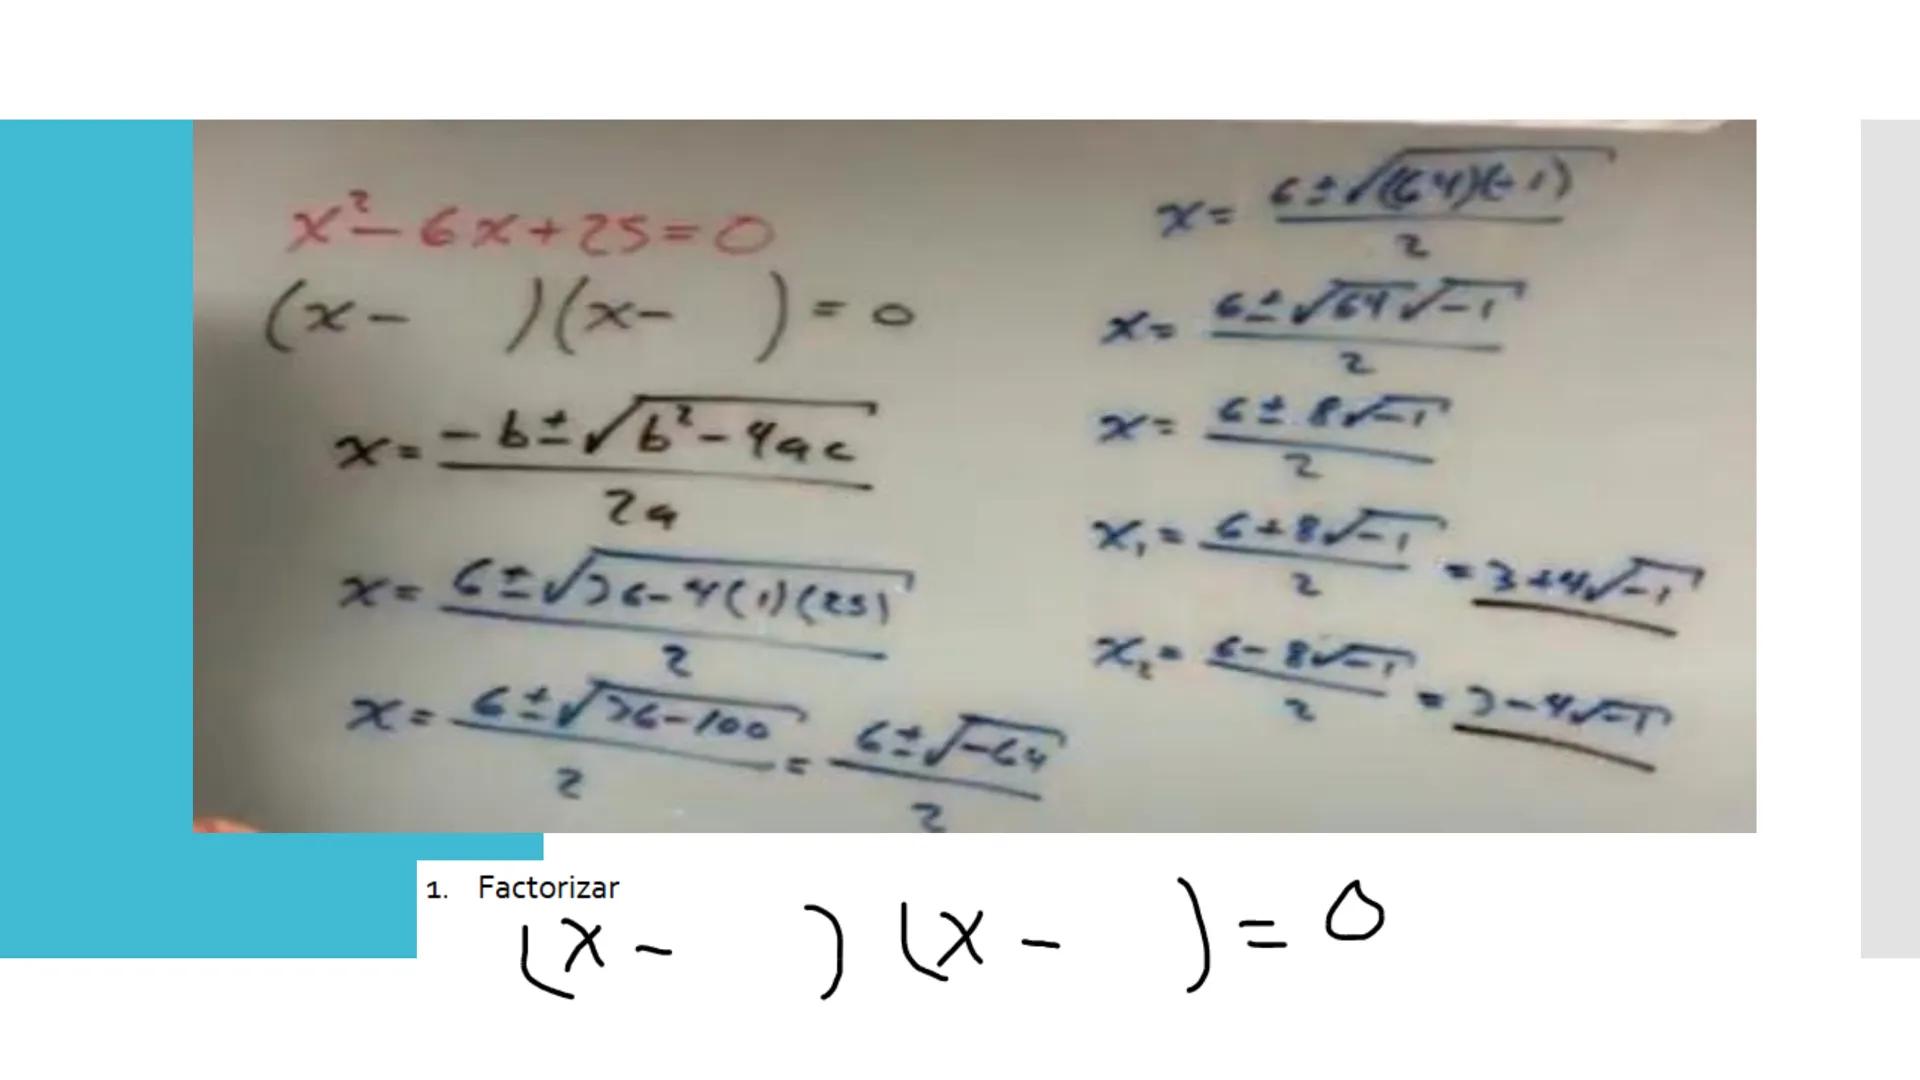 x²-6x+25=0
(x-    )(x-    )=0
x= -b±√(b²-4ac) / 2a
x= 6±√(36-4(1)(25)) / 2
x= 6±√(36-100) / 2 = 6±√(-64) / 2
x= 6±√((64)(-1)) / 2
x= 6±√64√-1 / 2
x= 6±8√-1 / 2
x₁= 6+8√-1 / 2 = 3+4√-1
x₂= 6-8√-1 / 2 = 3-4√-1
1. Factorizar
(x-    )(x-    )=0